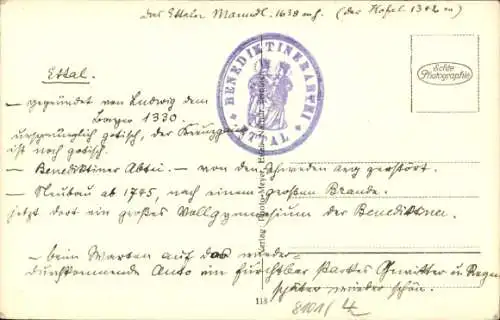 das Ettaler Manndl. 1638 m h. (der Kofel 1342 m)
Ettal.
— gegründet von Ludwig dem
Bayer 1330
ursprünglich gotisch, der Kreuzgang
ist noch gotisch.
— Benediktiner Abtei. — von den Schweden arg zerstört.
— Neubau ab 1745, nach einem großen Brande.
jetzt dort ein großes Vollgymnasium der Benediktiner.
— beim Warten auf das wieder-
durchkommende Auto ein furchtbar starkes Gewitter u. Regen
später wieder schön.
BENEDIKTINERABTEI
ETTAL
Echte
Photographie
Verlag: Photo-Meyer,
118
8101/